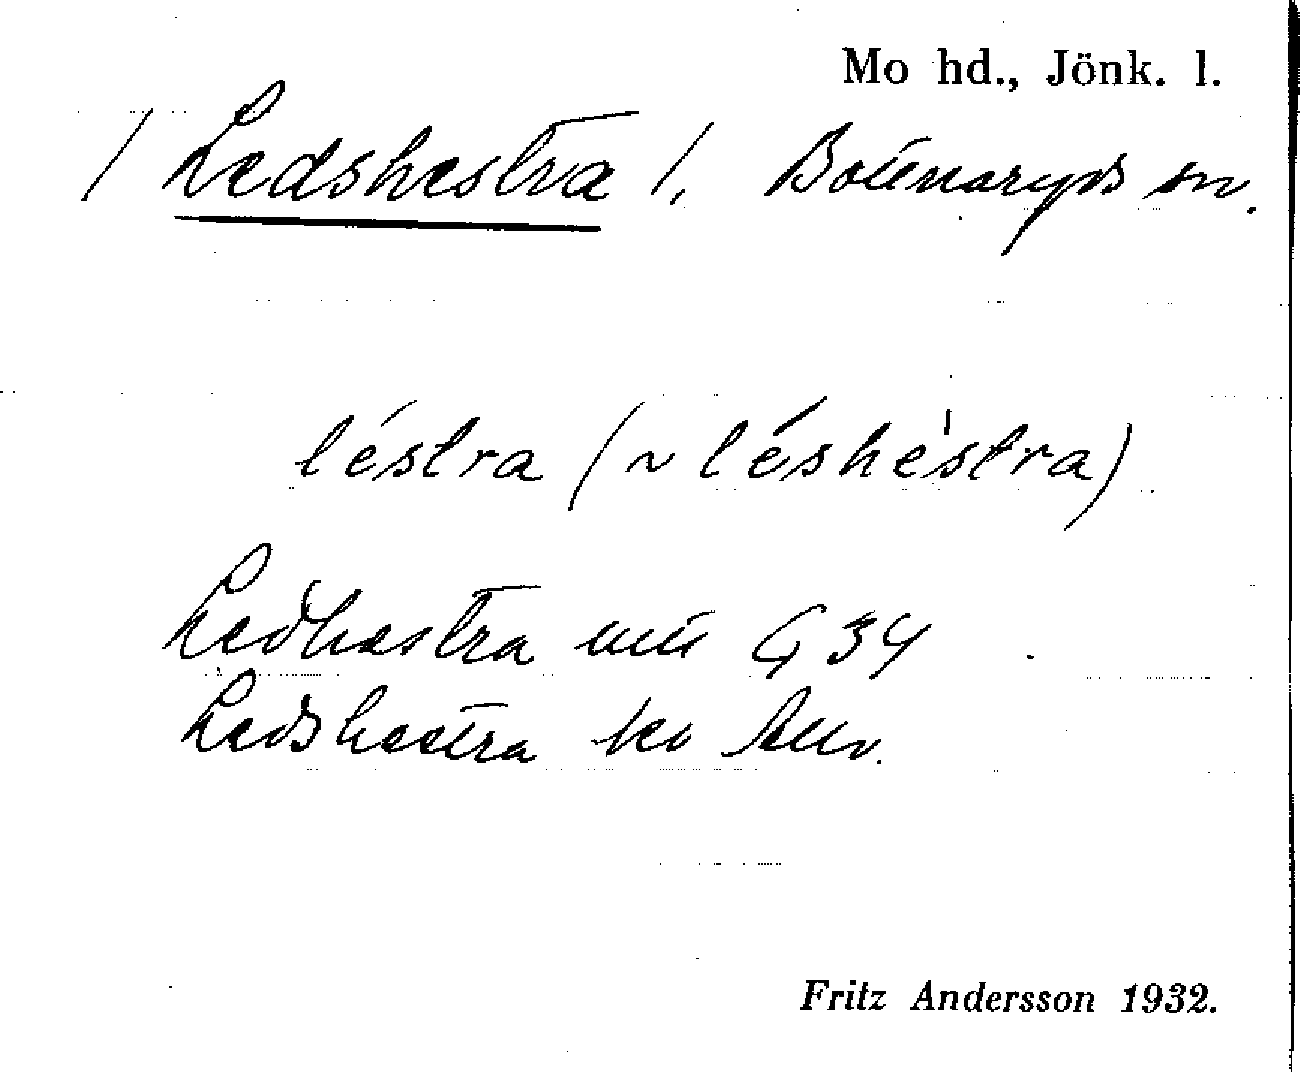 Mo hd., Jönk. l.
/ Ledshestra /, Bottnaryds sn.
léstra (~ léshèstra)
Ledhestra G 34
Ledshestra
Fritz Andersson 1932.